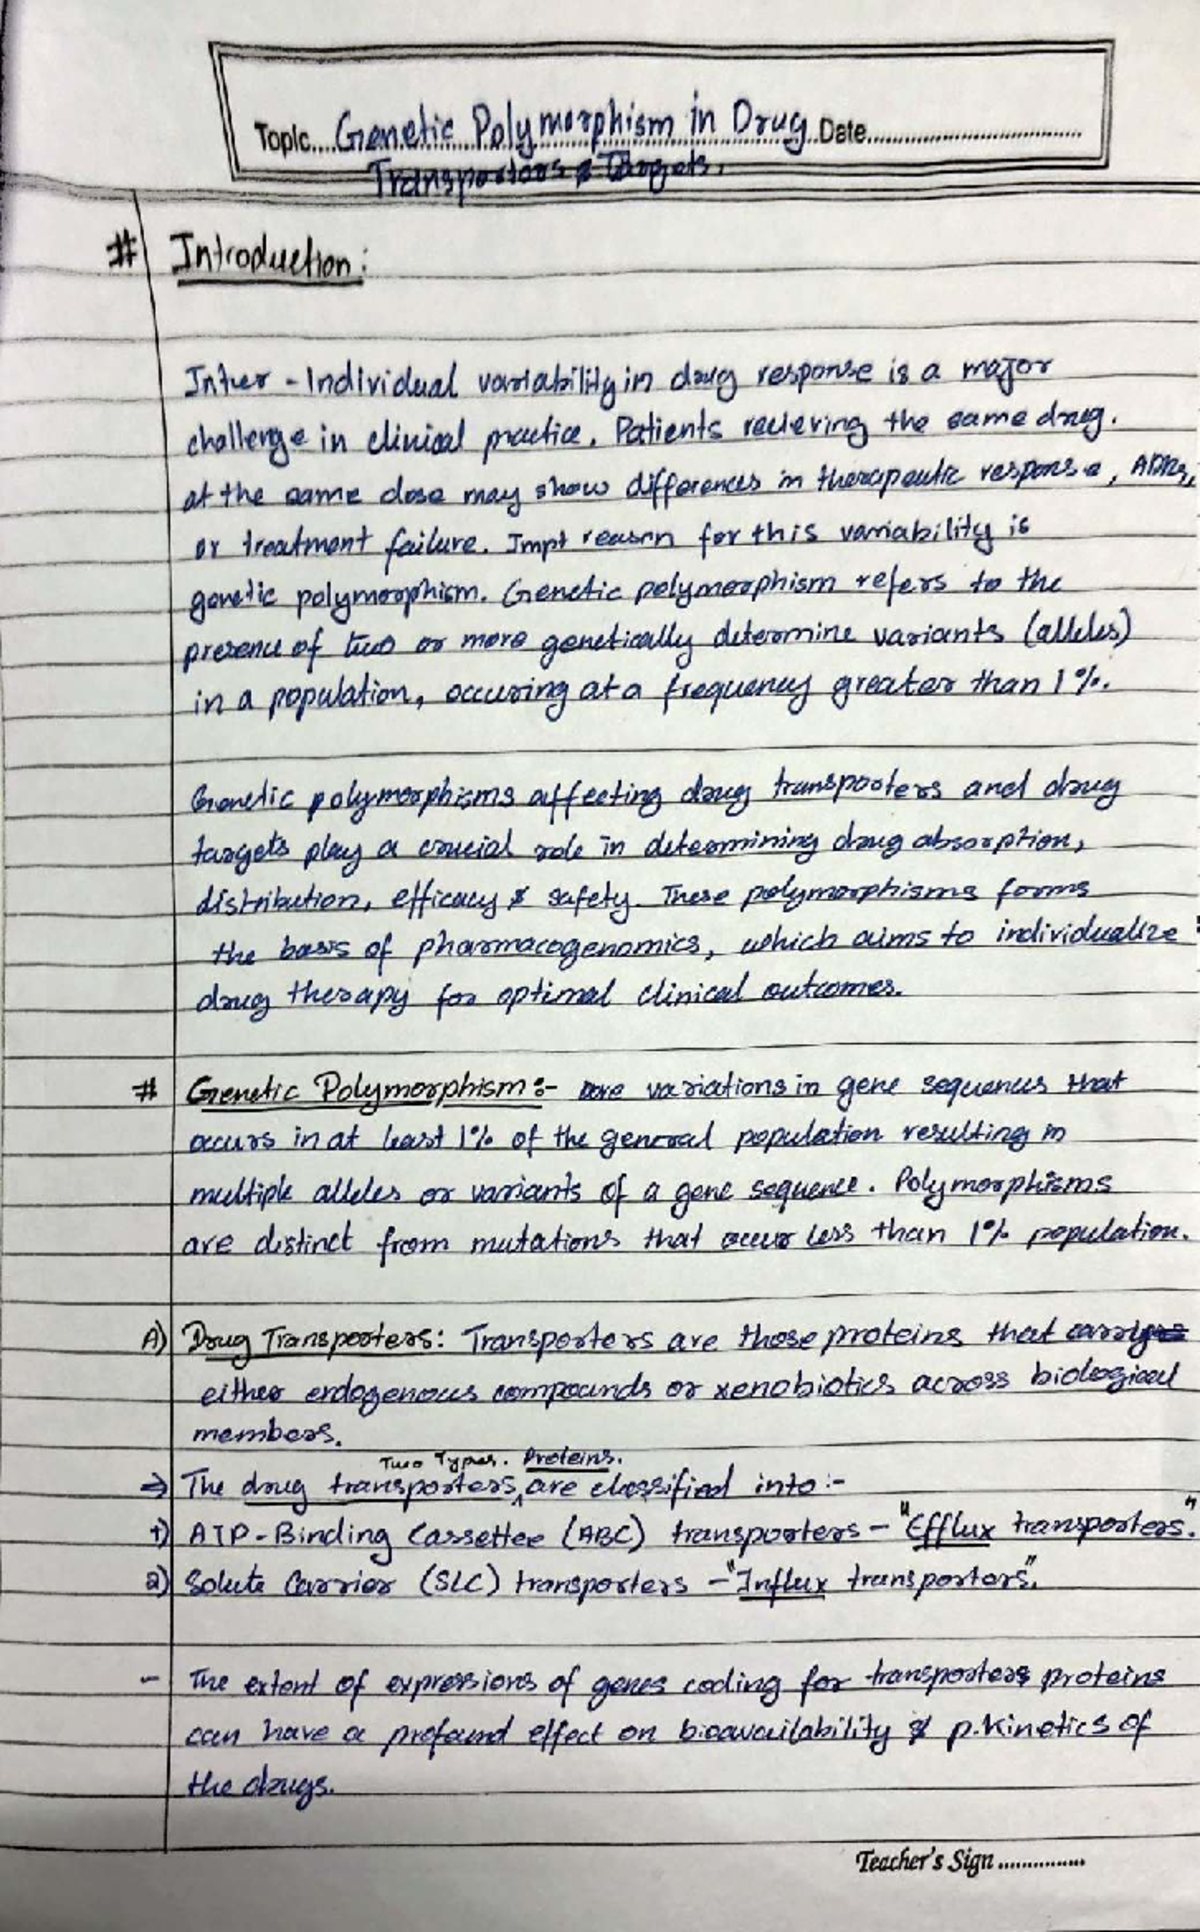 Topic....Genetic Polymorphism in Drug Date................................
Transportors & Targets.
# Introduction:
Inter - Individual variability in drug response is a major
challenge in clinical practice. Patients recieving the same drug.
at the same dose may show differences in therapeutic response, ADRs,
or treatment failure. Impt reason for this variability is
genetic polymorphism. Genetic polymorphism refers to the
presence of two or more genetically determine variants (alleles)
in a population, occuring at a frequency greater than 1%.
Genetic polymorphisms affecting drug transporters and drug
targets play a crucial role in determining drug absorption,
distribution, efficacy & safety. These polymorphisms forms
the basis of pharmacogenomics, which aims to individualize
drug therapy for optimal clinical outcomes.
# Genetic Polymorphism:- are variations in gene sequences that
occurs in at least 1% of the general population resulting in
multiple alleles or variants of a gene sequence. Polymorphisms
are distinct from mutations that occur less than 1% population.
A) Drug Transporters: Transporters are those proteins that carry
either endogenous compounds or xenobiotics across biological
members.
Two Types. Proteins.
⇒ The drug transporters, are classified into:-
1) ATP-Binding Cassettee (ABC) transporters - "Efflux transporters."
2) Solute Carrier (SLC) transporters - "Influx transportors".
- The extent of expressions of genes coding for transporters proteins
can have a profound effect on bioavailability & p.kinetics of
the drugs.
Teacher's Sign ...............